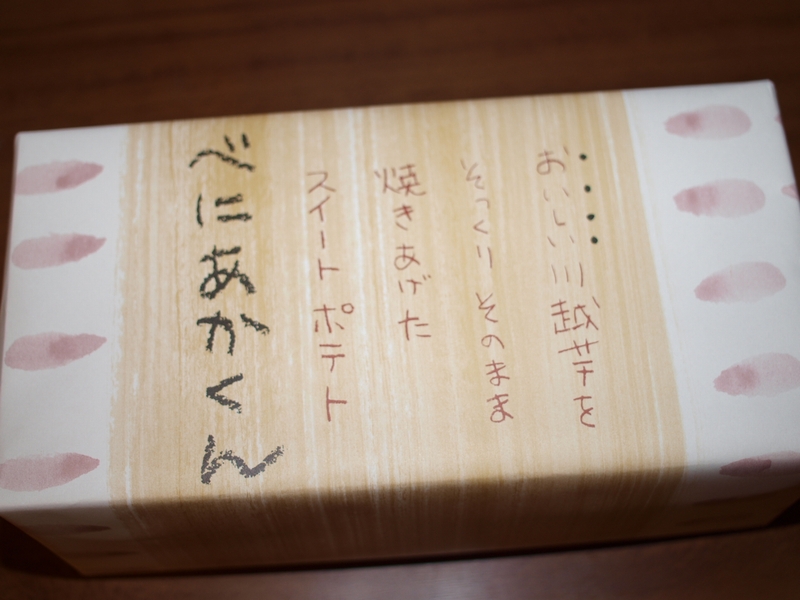 おいしい川越芋を
そっくりそのまま
焼きあげた
スイートポテト
べにあかくん